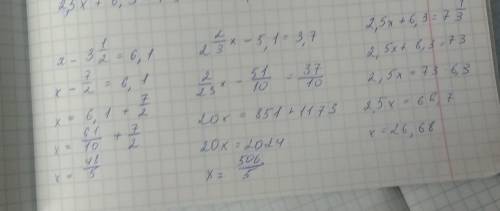 2,5x + 6,3
x - 3 1/2 = 6,1
x - 7/2 = 6,1
x = 6,1 + 7/2
x = 61/10 + 7/2
x = 48/5
2 2/3 x - 5,1 = 3,7
2/23 x - 51/10 = 37/10
20x = 851 + 1173
20x = 2024
x = 506/5
2,5x + 6,3 = 7 1/3
2,5x + 6,3 = 73
2,5x = 73 6,3
2,5x = 66,7
x = 26,68